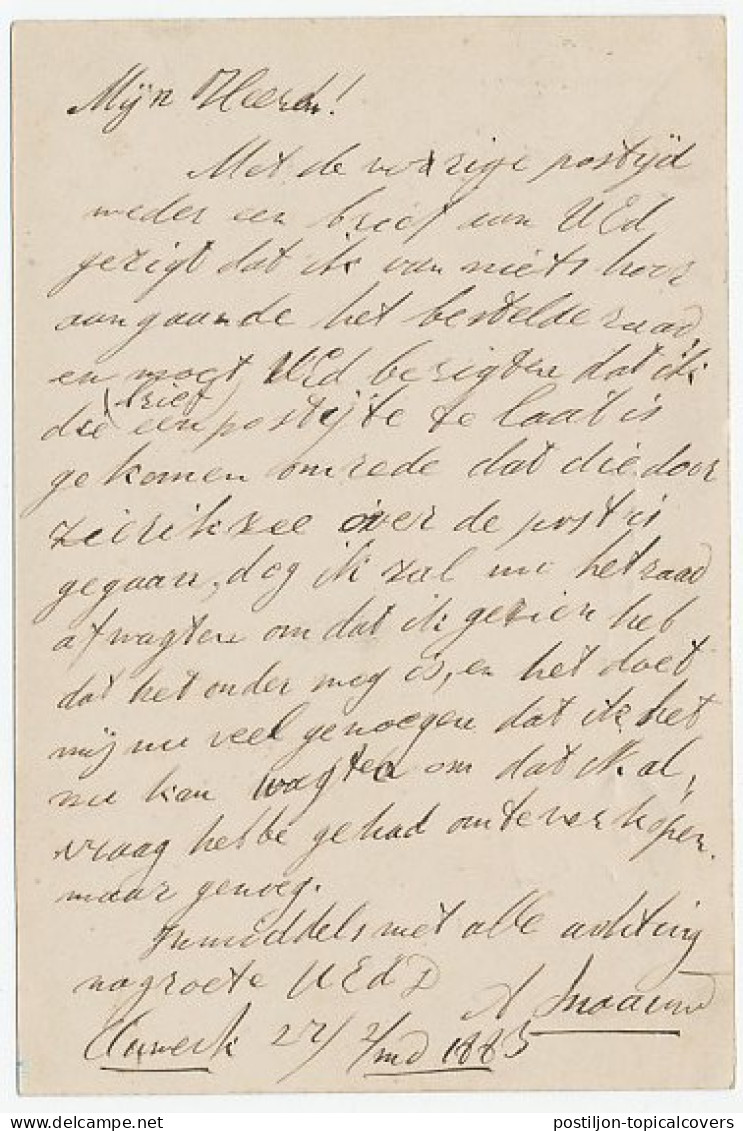 Mijn Heeren!
Met de vorrige postijd
weder een brief aan UEd
gerigt dat ik van niets hoor
aangaande het bestelde zaad,
en moet UEd berigten dat ik
brief
die een postijte te laat is
gekomen omrede dat die door
Zierikzee over de post is
gegaan, dog ik zal nu het zaad
afwagten omdat ik gezien heb
dat het onder weg is, en het doet
mij nu veel genoegen dat ik het
nu kan wagten om dat ik al,
vraag hebbe gehad om te verkopen.
maar genoeg.
Inmiddels met alle achting
nagroete UEdD
A
27/2 1885
postiljon-topicalcovers